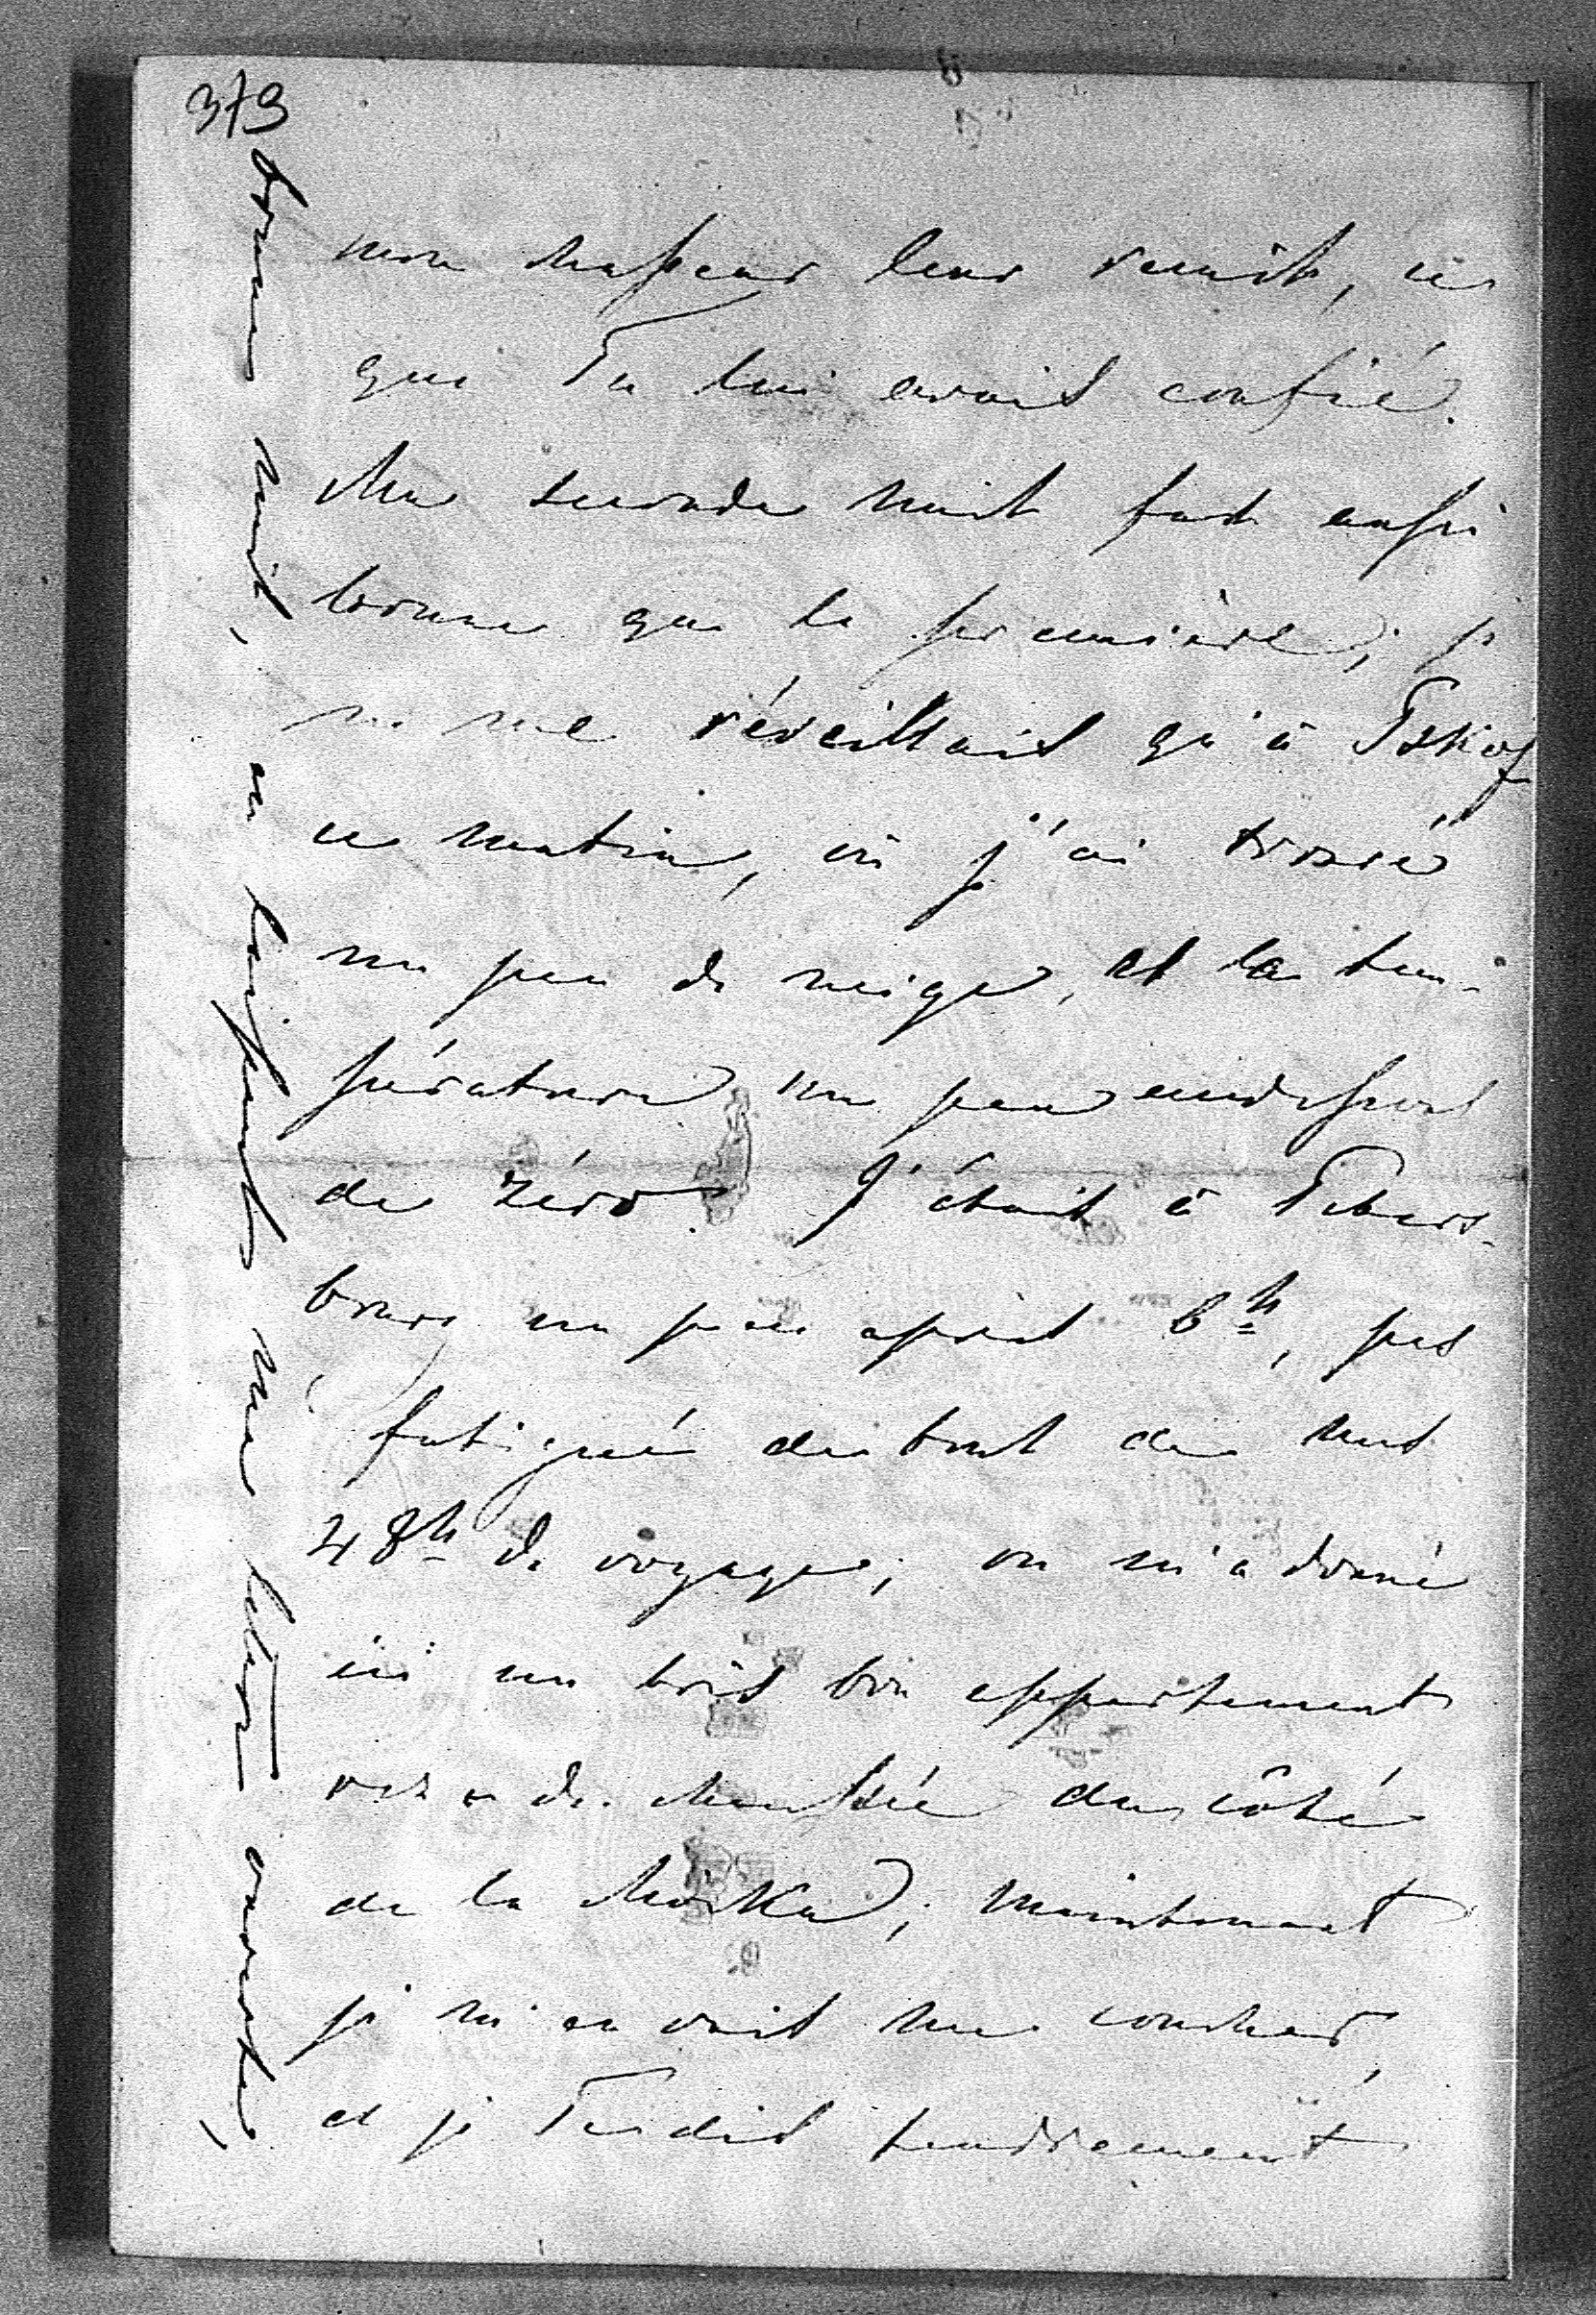 373
mon chasseur leur remit, ce
que Tu lui avais confié.
Ma seconde nuit fut aussi
bonne que la première; je
ne me réveillais qu'à Pskof
ce matin, où j'ai trouvé
un peu de neige, et la tem-
pérature un peu audessus
de zéro. J'étais à Peters-
bourg un peu après 6h, pas
fatigué du tout de mes
48h de voyage; on m'a donné
ici un très bon appartement
rez de chaussée du côté
de la Moïka; maintenant
je m'en vais me coucher,
et je Te dis tendrement
bonne nuit, en laissant ma lettre ouverte,